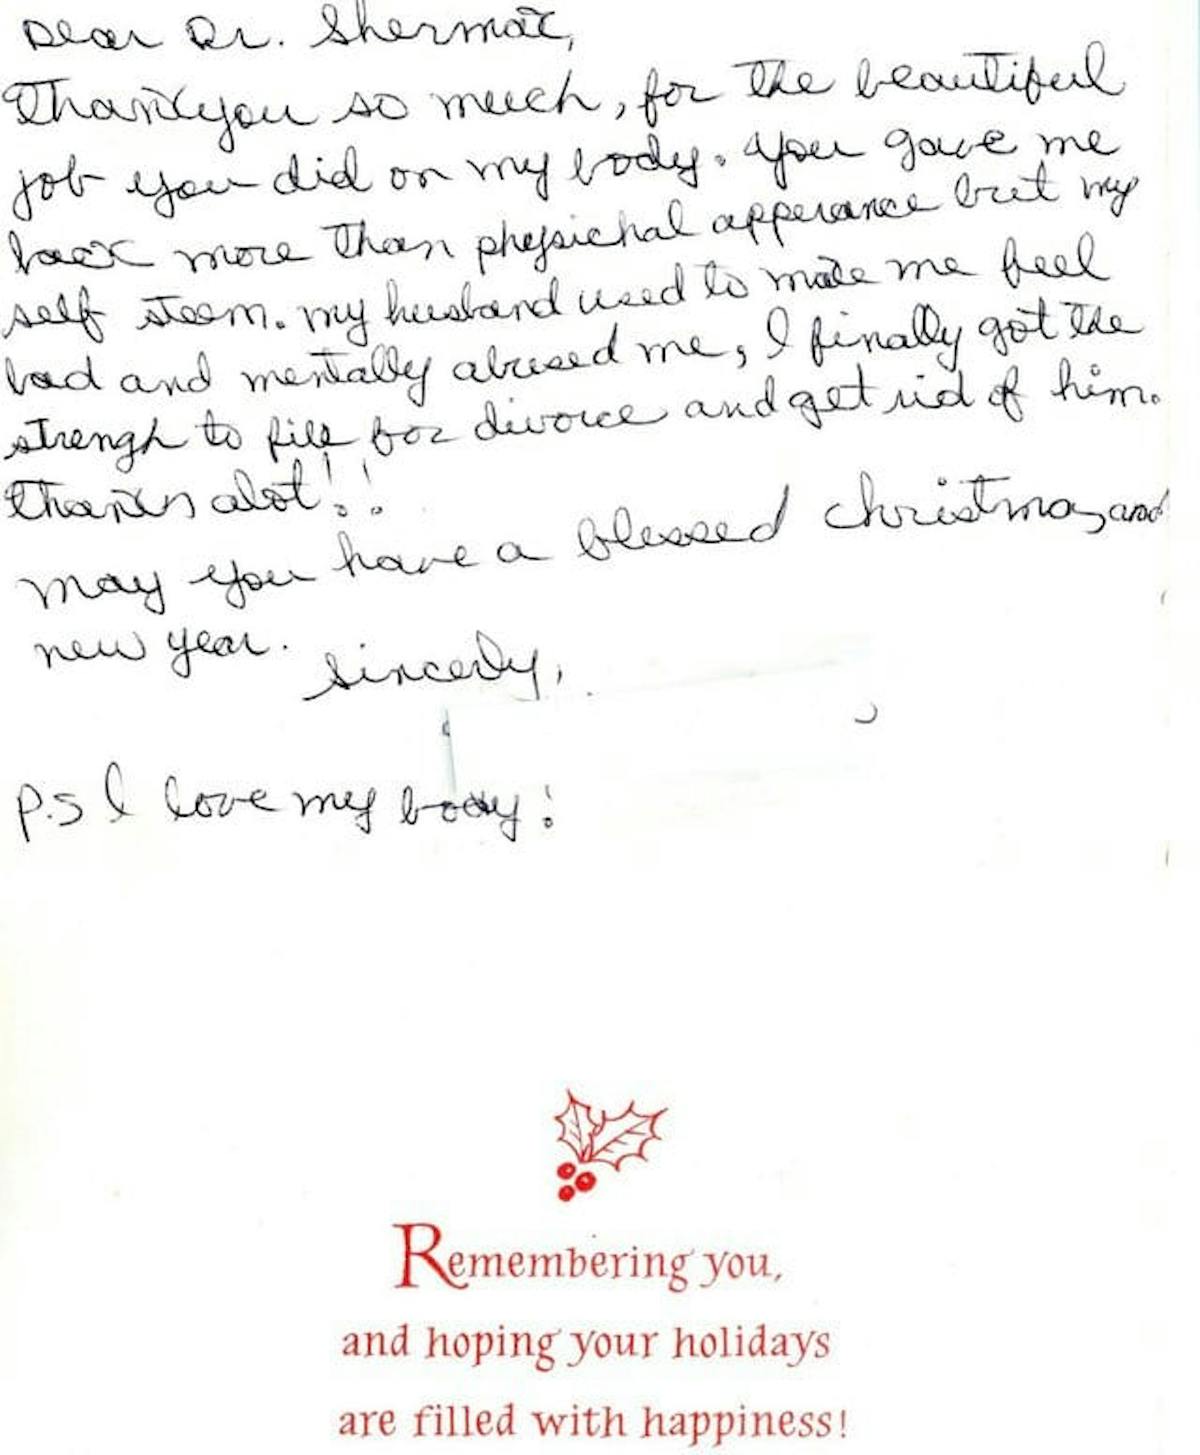 Dear Dr. Shermak,
Thankyou so much, for the beautiful
job you did on my body. you gave me
back more than physichal apperance but my
self steem. my husband used to make me feel
bad and mentally abused me, I finally got the
strengh to file for divorce and get rid of him.
thanks alot!!
may you have a blessed christmas and
new year.
sincerly,
P.S I love my body!
Remembering you,
and hoping your holidays
are filled with happiness!